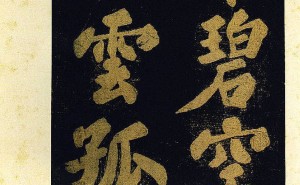 碧空
雲孤